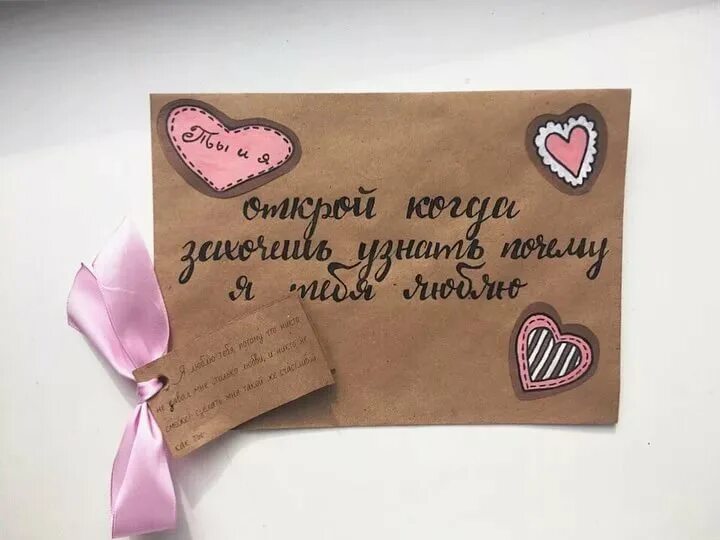 Ты и я
открой когда
захочешь узнать почему
я тебя люблю
Я люблю тебя, потому что никто
не давал мне столько любви, и никто не
сможет сделать меня такой же счастливой
как ты